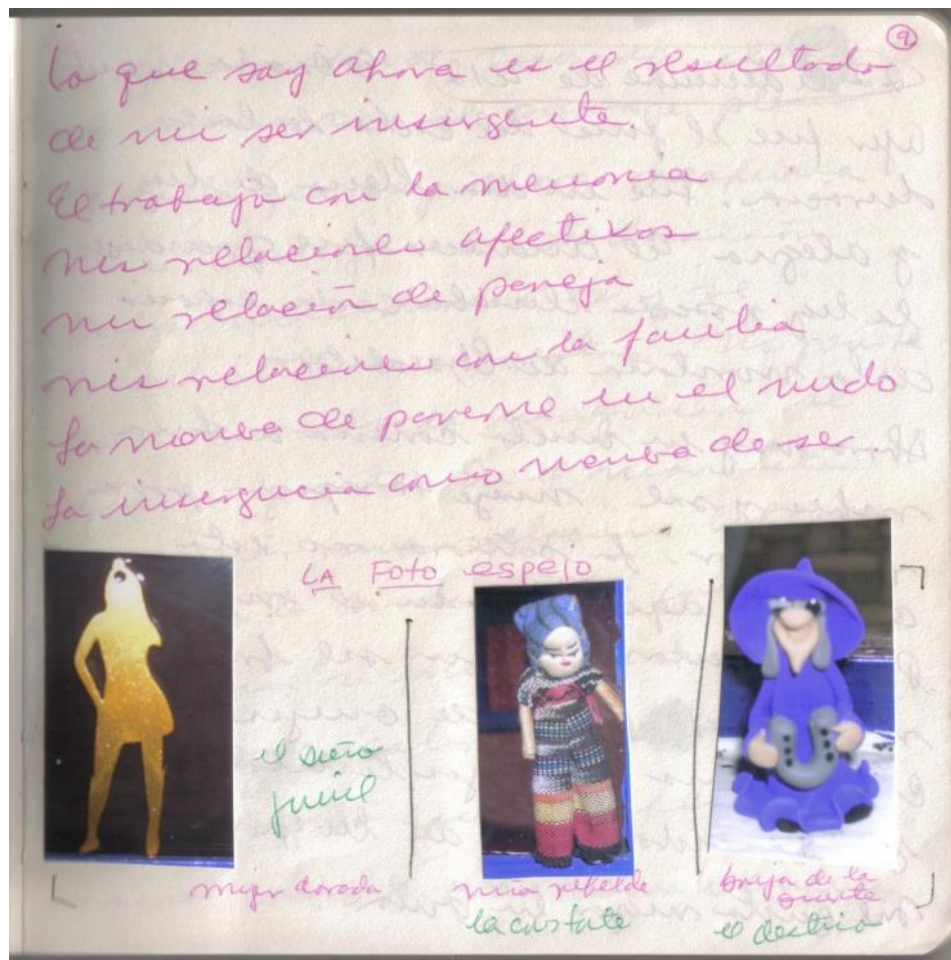 9
Lo que soy ahora es el resultado
de mi ser insurgente.
El trabajo con la memoria
mis relaciones afectivas
mi relación de pareja
mis relaciones con la familia
La manera de ponerme en el mundo
La insurgencia como manera de ser.
LA FOTO espejo
el sueño
juvenil
mujer dorada
niña rebelde
bruja de la
suerte
la constante
el destino